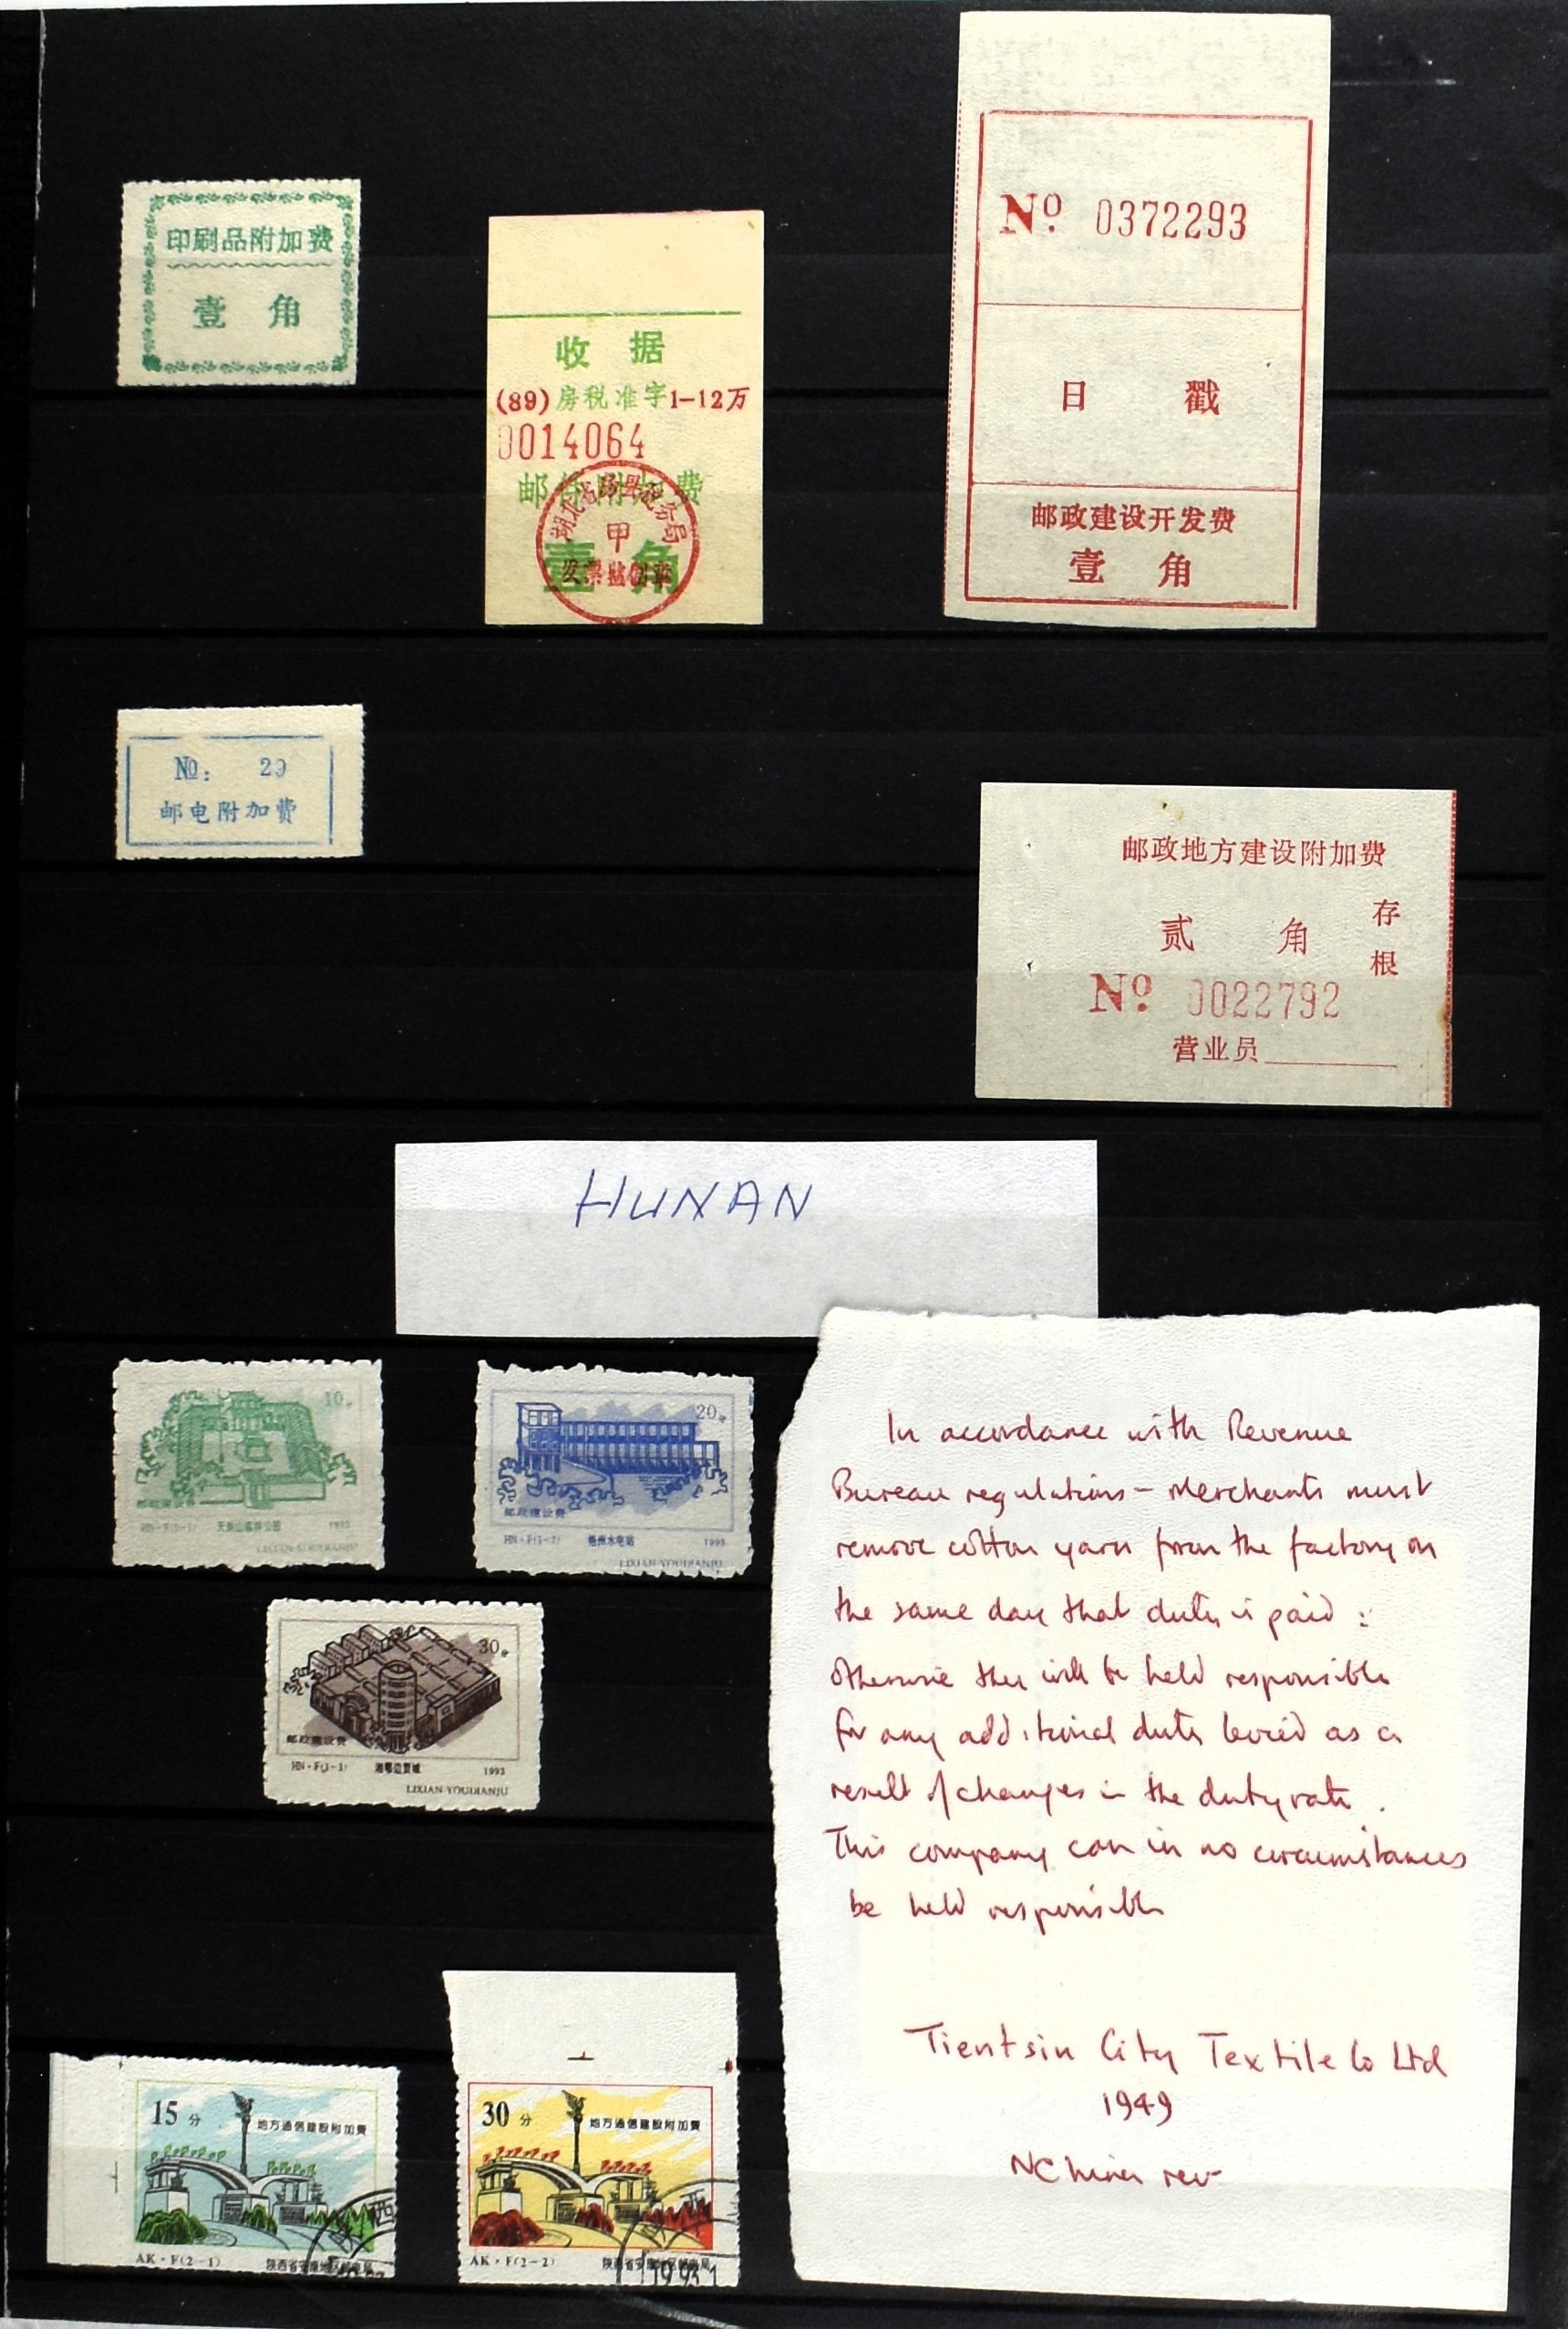 印刷品附加费
壹 角
收 据
(89)房税准字1-12万
0014064
邮件附加费
壹 角
湖北省房县税务局
甲
发票监制章
Nº 0372293
日 戳
邮政建设开发费
壹 角
№: 29
邮电附加费
邮政地方建设附加费
贰 角
存根
Nº 0022792
营业员
HUNAN
10分
邮政建设费
HN·F(3-1) 1993
LIXIAN YOUDIANJU
20分
邮政建设费
HN·F(3-2) 水电站 1993
LIXIAN YOUDIANJU
30分
邮政建设费
HN·F(3-3) 湘鄂边贸城 1993
LIXIAN YOUDIANJU
In accordance with Revenue
Bureau regulations – Merchants must
remove cotton yarn from the factory on
the same day that duty is paid :
otherwise they will be held responsible
for any additional duty levied as a
result of changes in the duty rate .
This company can in no circumstances
be held responsible
Tientsin City Textile Co Ltd
1949
N China rev
15 分
地方通信建设附加费
AK·F(2-1) 陕西省安康地区邮电局
30 分
地方通信建设附加费
AK·F(2-2) 陕西省安康地区邮电局